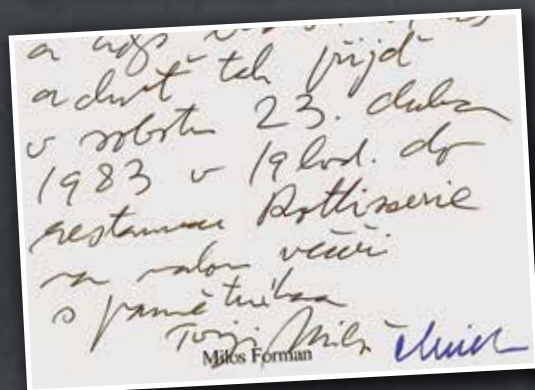 a
a chuť tak přijď
v sobotu 23. dubna
1983 v 19 hod. do
restaurace Rottisserie
na malou večeři
s pamětníkama
Tvůj Miloš
Miloš Forman